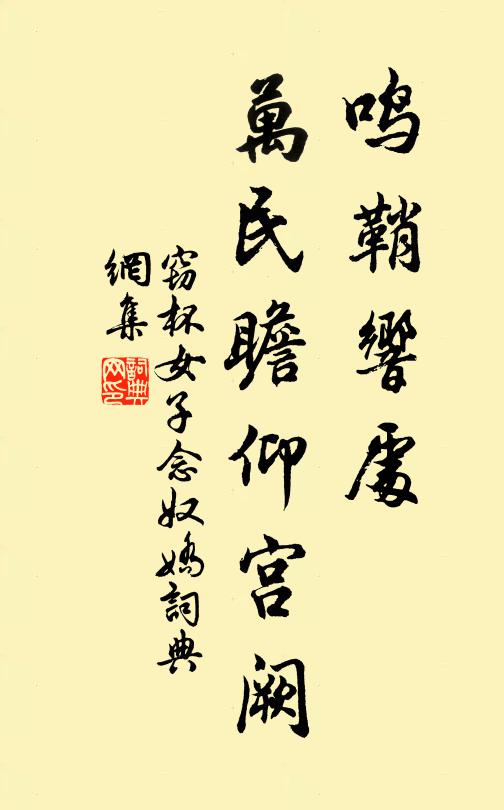 鳴鞘響處
萬民瞻仰宮闕
窃杯女子念奴嬌詞典
網集
詞典
网印